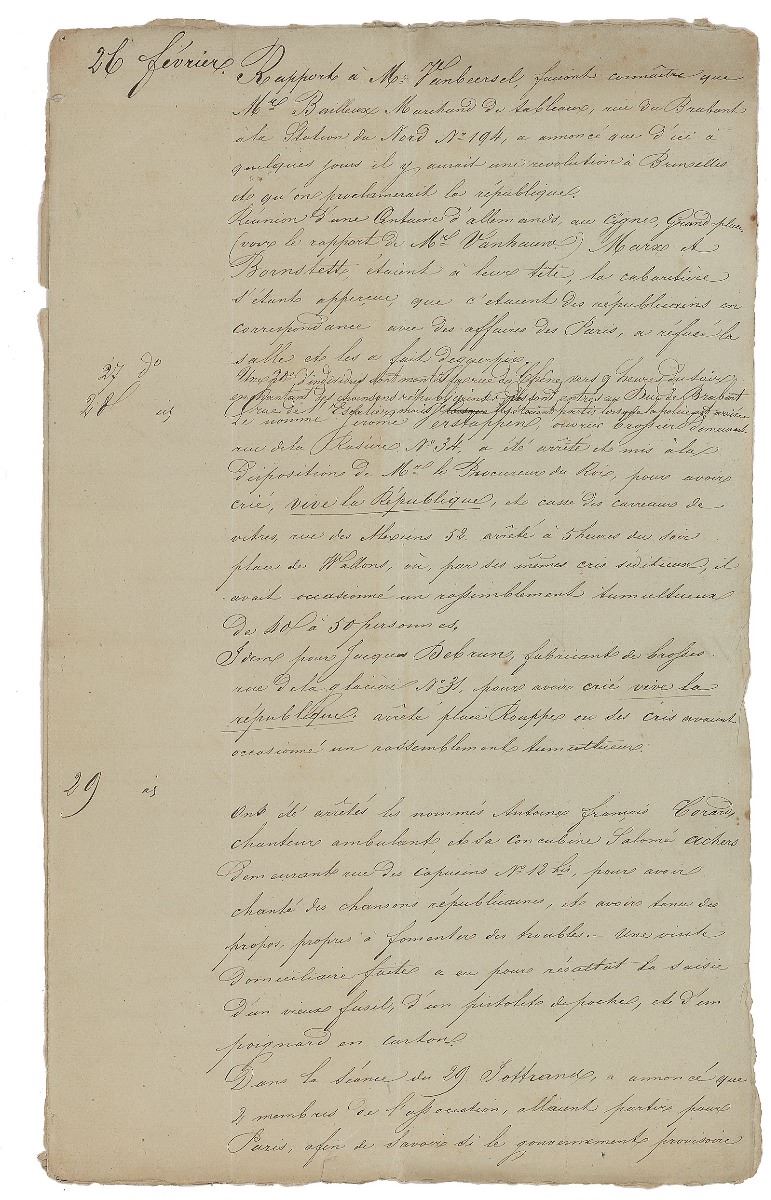 26 février. Rapport à Mr Vanbeersel, faisant connaître que
Mr Bailleux Marchand de tableaux, rue du Brabant
à la Station du Nord No 194, a annoncé que d'ici à
quelques jours il y aurait une revolution à Bruxelles
et qu'on proclamerait la république.
Réunion d'une Centaine d'allemands, au Cygne, Grand-place
(voir le rapport de Mr Vanhauw) Marx et
Bornstett, étaient à leur tete, la cabaretière
s'étant apperçue, que c'étaient des républicains en
correspondance avec des affaires des Paris, a refusé la
salle et les a fait déguerpir.
27 do d'individus sont montés par rue du Chêne, vers 9 heures du soir,
en chantant des chansons sont entrés au Duc de Brabant
rue de l'Escalier, mais ils étaient partis lorsque la police est arrivée
28 id Le nommé Jérome Verstappen, ouvrier brossier demeurant
rue de la Rasière No 34, a été arrêté et mis à la
disposition de Mr le Procureur du Roi, pour avoir
crié, vive la République, et cassé des carreaux de
vitres, rue des Alexiens 52. arrêté à 5 heures du soir
place des Wallons, où, par ses mêmes cris séditieux, il
avait occasionné un rassemblement tumultueux
de 40 à 50 personnes.
Idem pour Jacques Debrun, fabricant de brosses
rue de la glacière No 31, pour avoir crié vive la
république. arrêté place Rouppe où ses cris avaient
occasionné un rassemblement tumultueux.
29 id
Ont été arrêtés les nommés Antoine françois
chanteur ambulant et sa concubine Salomé Achers
demeurant rue des capucins No 12 bis, pour avoir
chanté des chansons républicaines, et avoir tenu des
propos, propres à fomenter des troubles.- Une visite
domiciliaire faite a eu pour résultat la saisie
d'un vieux fusil, d'un pistolet de poche, et d'un
poignard en carton.
Dans la séance du 29 Jottrand, a annoncé que
2 membres de l'association, allaient partir pour
Paris, afin de savoir si le gouvernement provisoire